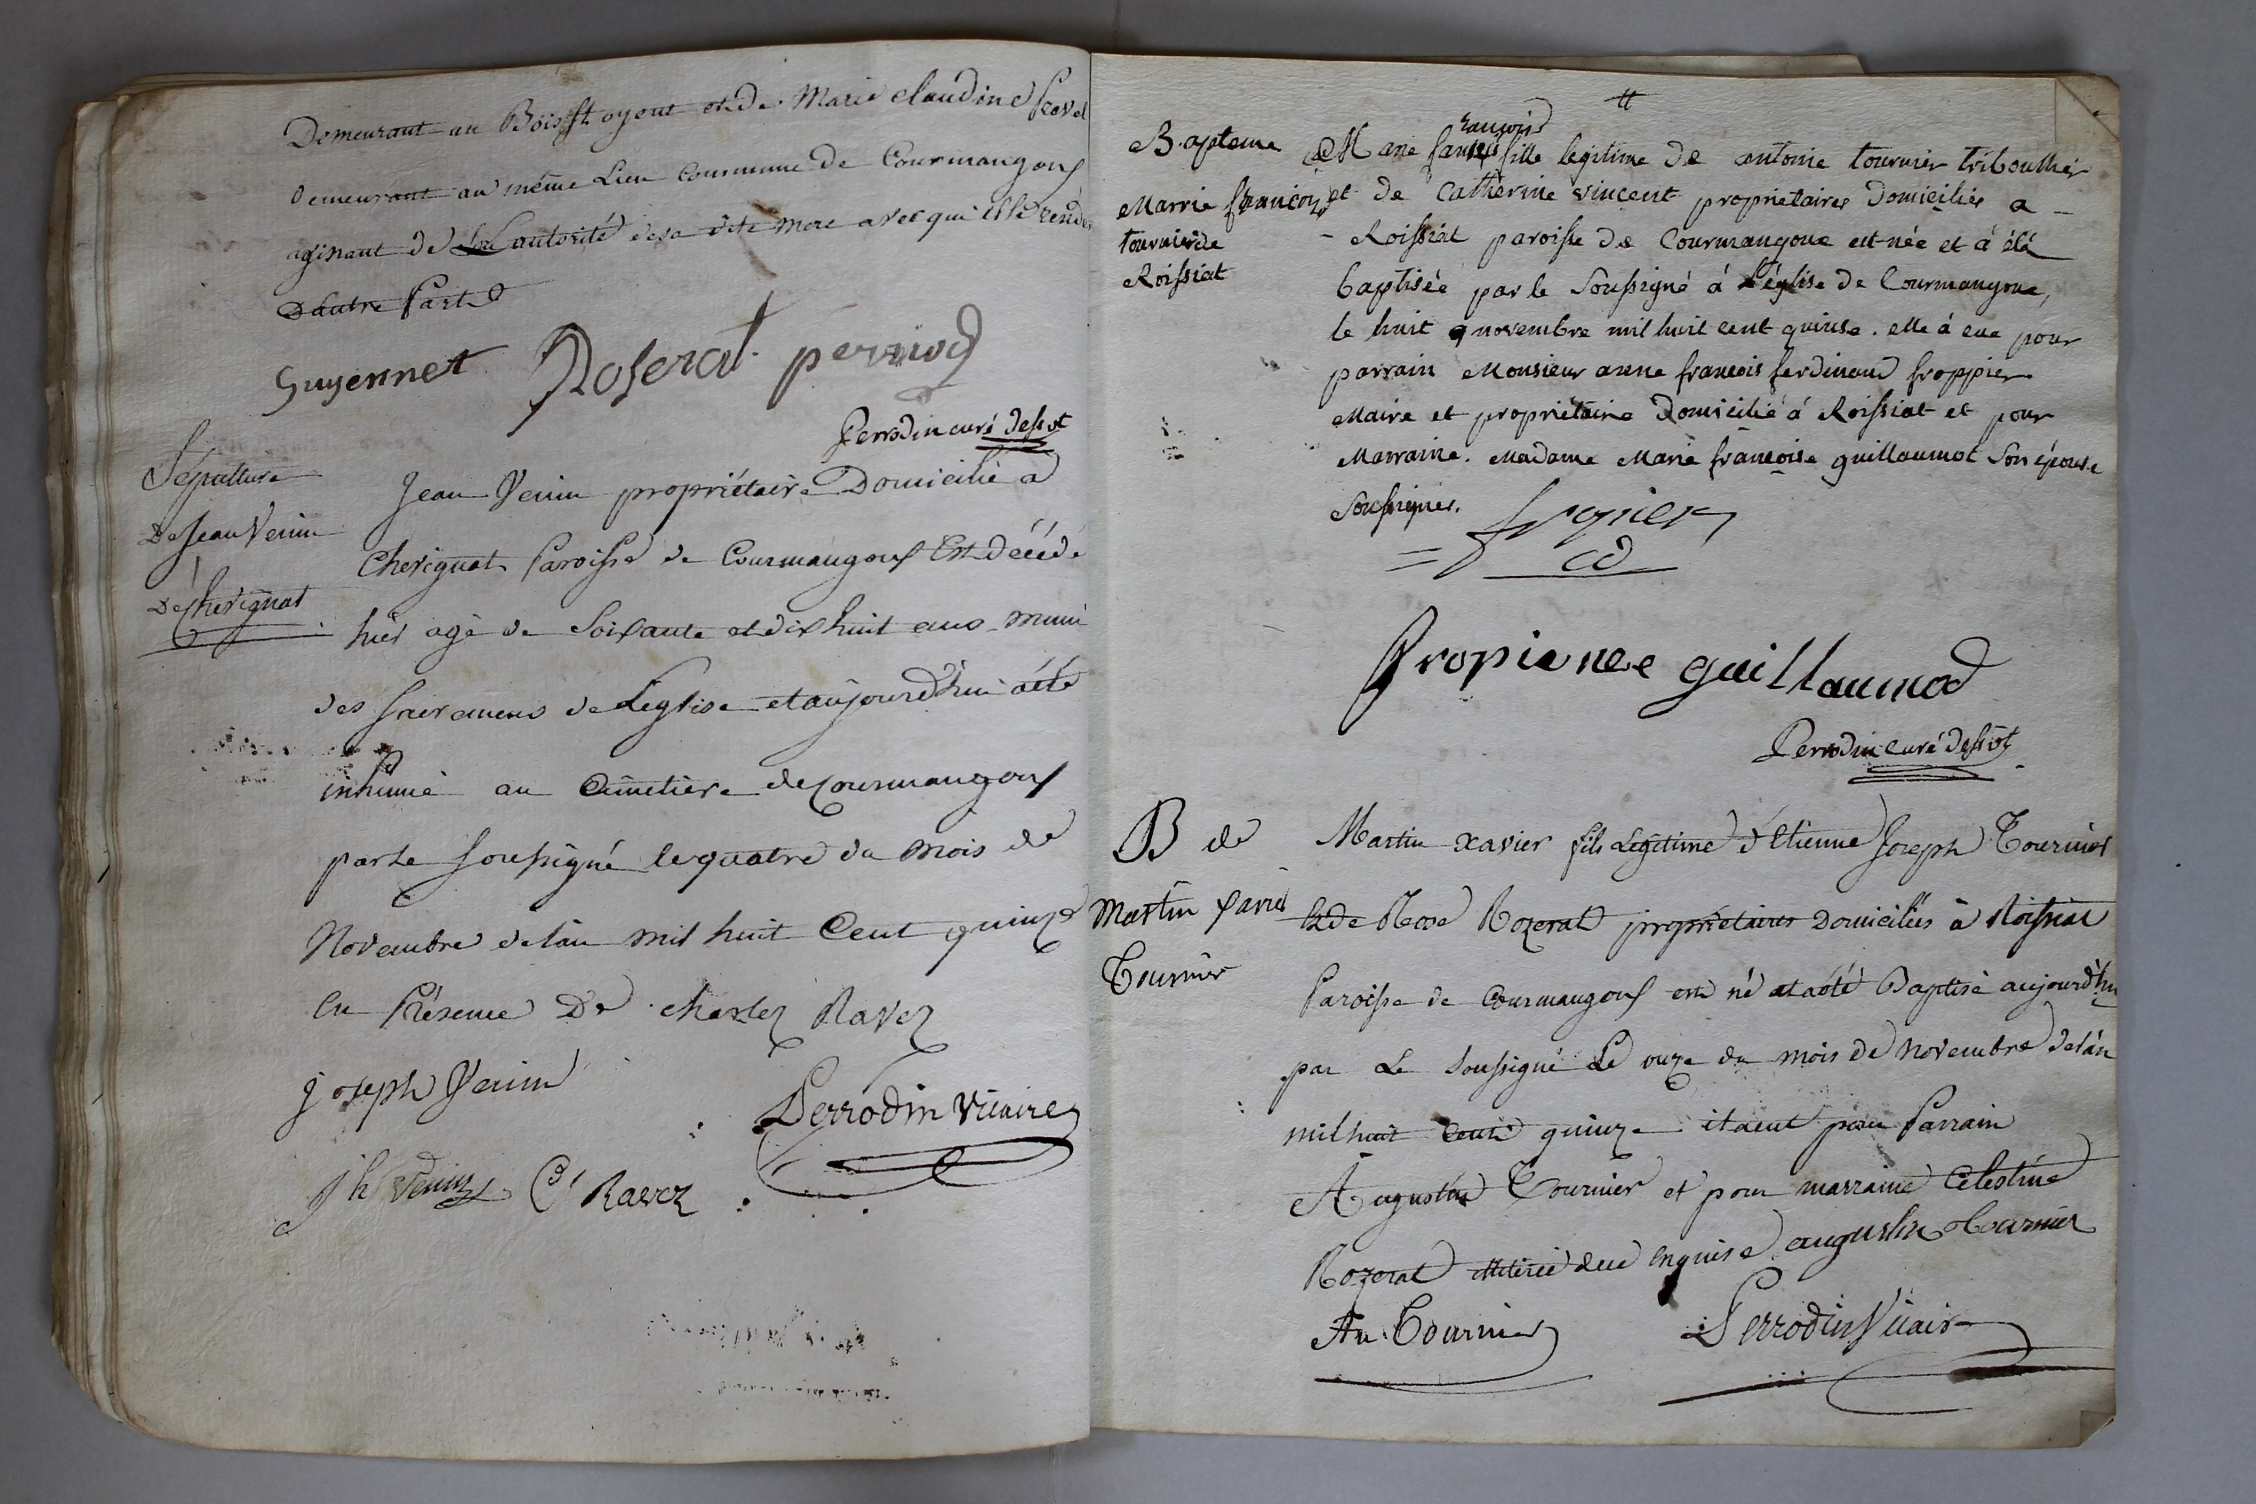 Demeurant au Bois St oyent et de Marie Claudine Pravel
demeurant au même Lieu commune de Courmangoux
agissant de Son autorité de sa dite mere avec qui elle reside
D'autre Part
Guyennet Roserat perriod
Perrodin curé dessvt
Sépulture
De Jean Venin
De Chevignat
Jean Venin propriétaire Domicilié a
Chevignat Paroisse de Courmangoux Est décédé
hier agé de Soixante et dix huit ans muni
des Sacremens de L'eglise et aujourd'hui a été
inhumé au Cimetière de Courmangoux
par le Soussigné le quatre du mois de
Novembre de l'an mil huit Cent quinze
En Présence De Charles Ravez
joseph Venin
Perrodin Vicaire
jh Venin Ch Ravez
tt
Bapteme
Marrie francoise
tournier de
Roissiat
rancoise
Marie fille legitime de antoine tournier triboullier
et de Catherine vincent proprietaires Domiciliés a
Roissiat paroisse de Courmangoux est née et à été
baptisée par le Soussigné à L'église de Courmangoux,
le huit novembre mil huit cent quinse. elle à eue pour
parrain Monsieur anne francois ferdinand froppier
Maire et propriétaire Domicilié à Roissiat et pour
Marraine. Madame Marie francoise guillaumot Son épouse
Soussignés. fropier
fropier nee guillaumod
Perrodin curé dessvt
B de
Martin Xavier
Tournier
Martin Xavier fils Légitime d'Etienne Joseph Tournier
& de Rose Rozerat propriétaires Domiciliés à Roissiat
Paroisse de Courmangoux est né et a été Baptisé aujourd'hui
par Le Soussigné Le onze du mois de Novembre de l'an
mil huit Cent quinze il a eut pour Parrain
Augustin Tournier et pour marraine Célestine
Rozerat illitérée de ce enquise augustin tournier
Au. Tournier Perrodin Vicair